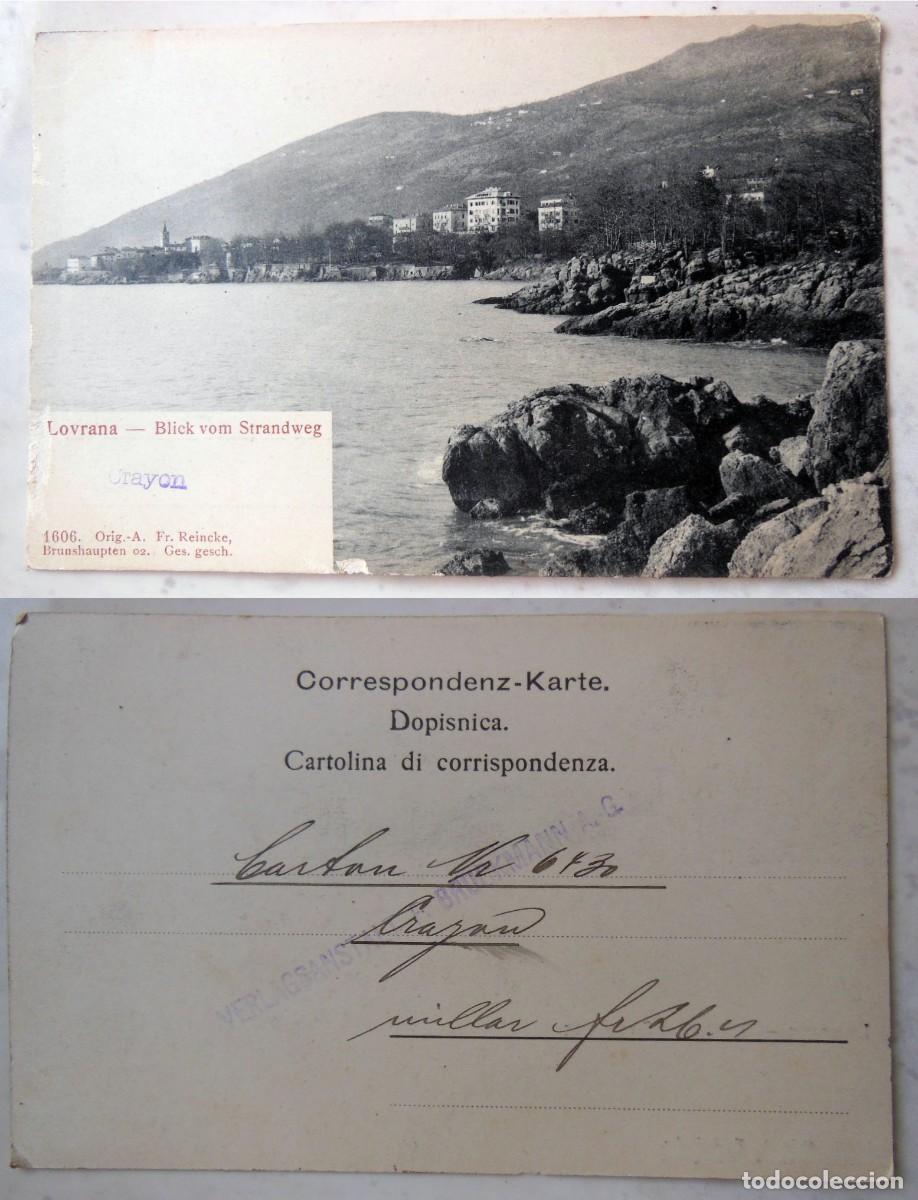 Lovrana — Blick vom Strandweg
Crayon
1606. Orig.-A. Fr. Reincke,
Brunshaupten 02. Ges. gesch.
Correspondenz-Karte.
Dopisnica.
Cartolina di corrispondenza.
Carton Nr 6430
Crayon
VERLAGSANST BRUCKMANN A. G.
millar fr
todocoleccion